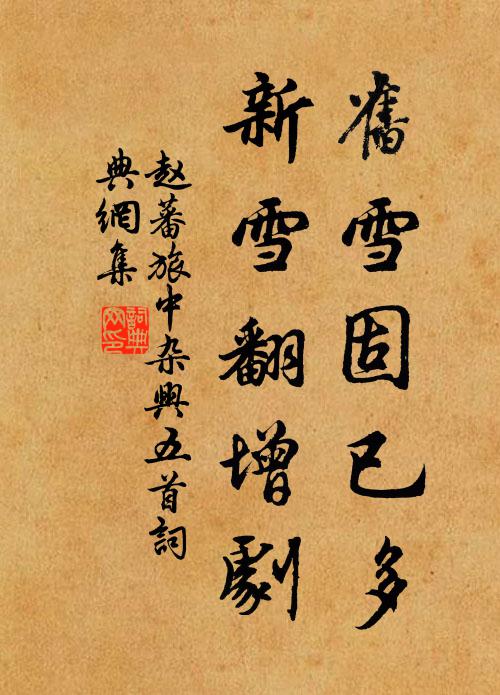 舊雪固已多
新雪翻增劇
赵蕃旅中杂興五首詞
典網集
詞典網印